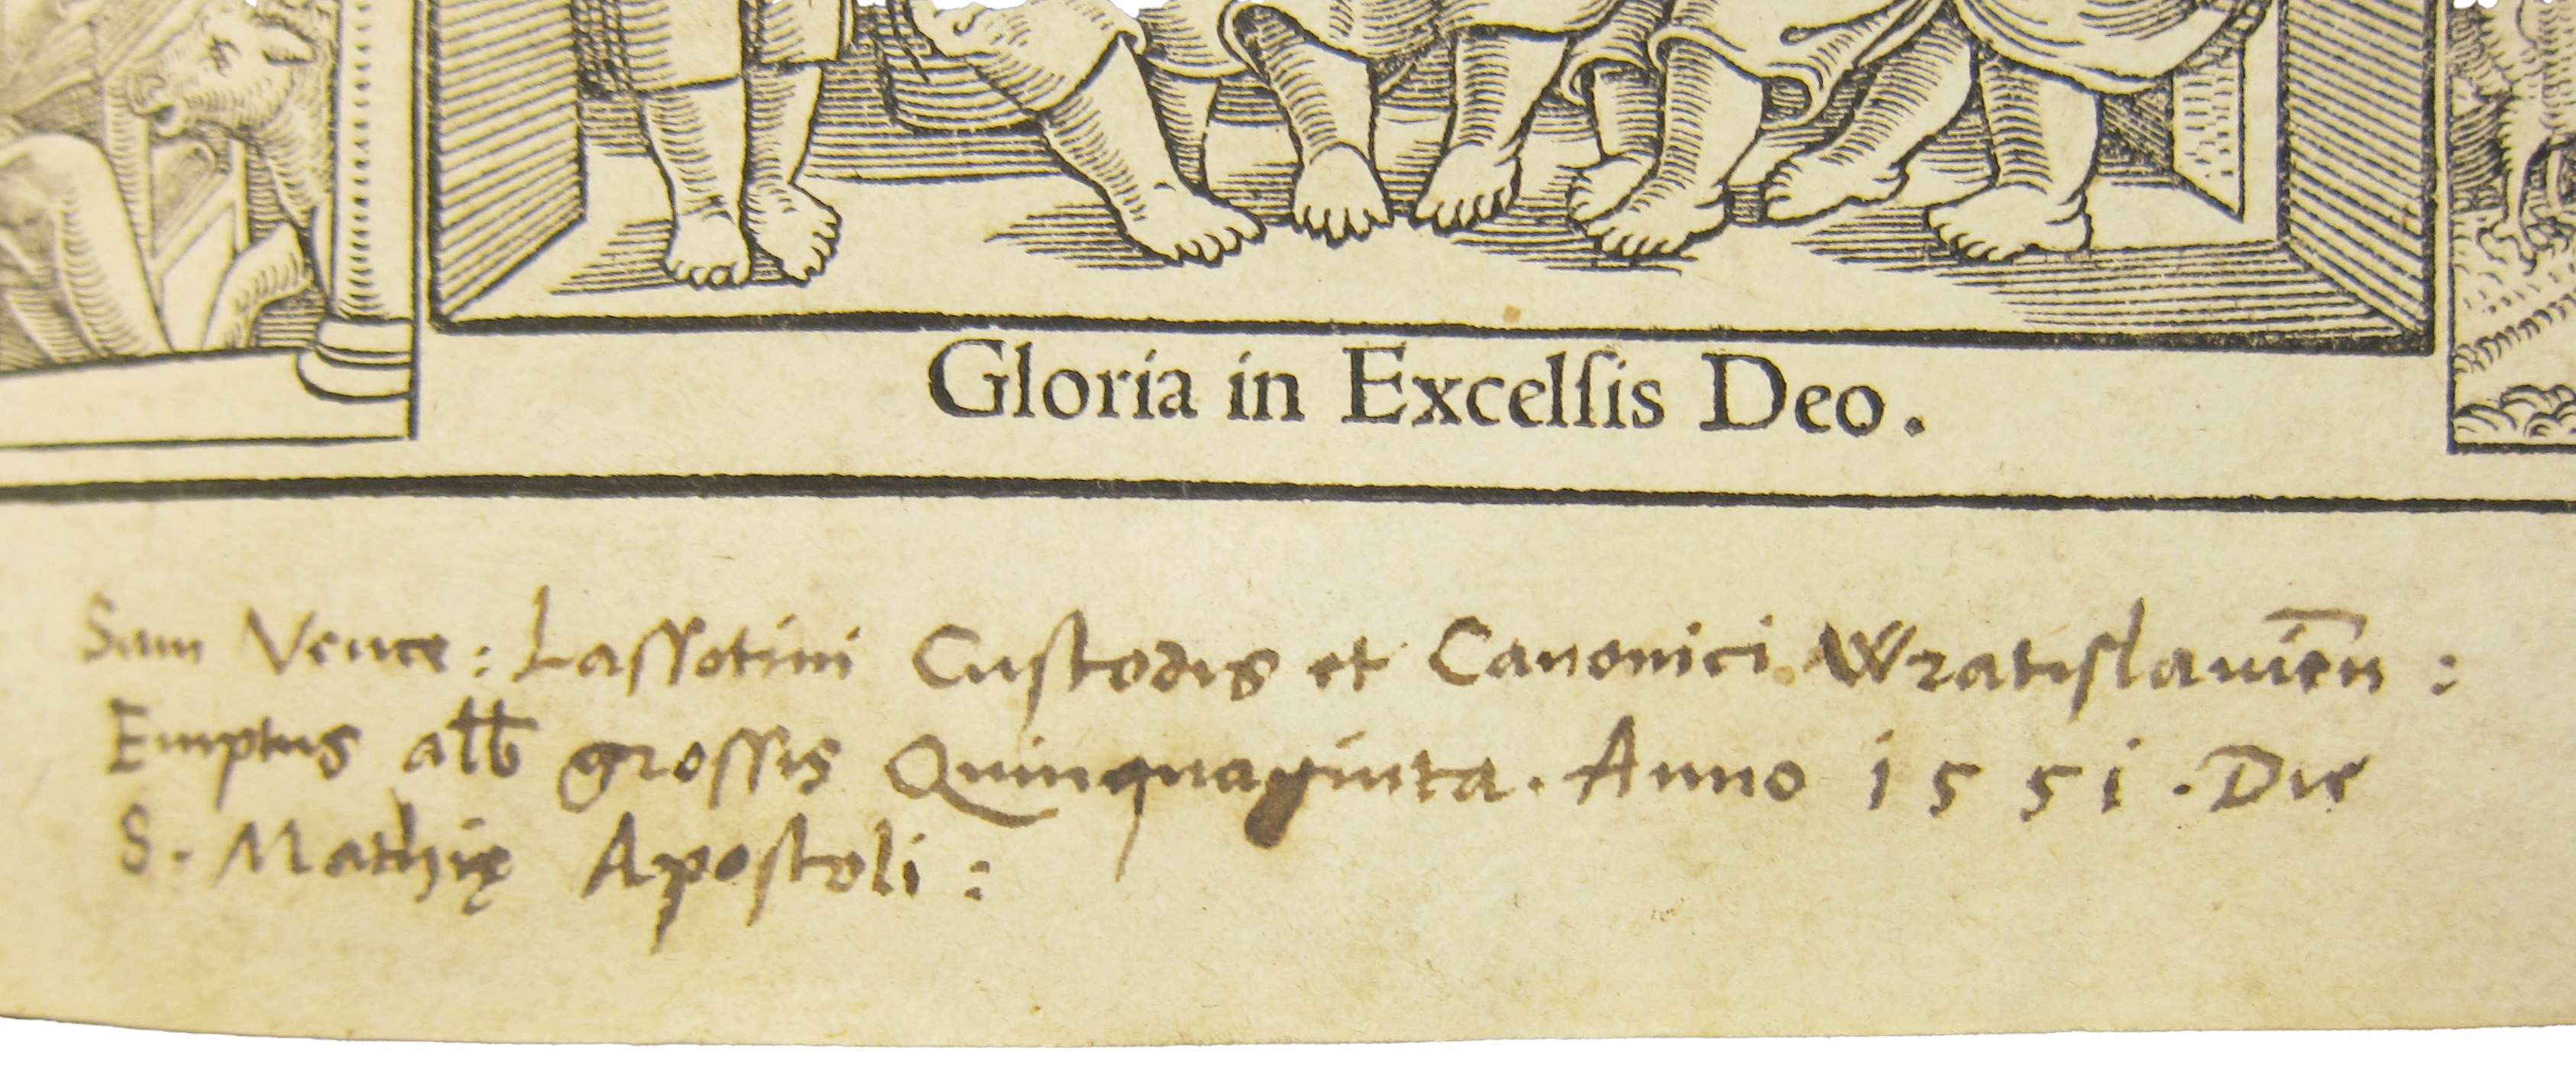 Gloria in Excelſis Deo.
Sum Vence: Laſſotini Custodis et Canonici Wratislauien̄:
Emptus alb grossis Quinquaginta. Anno 1551. Die
S. Mathię Apostoli: